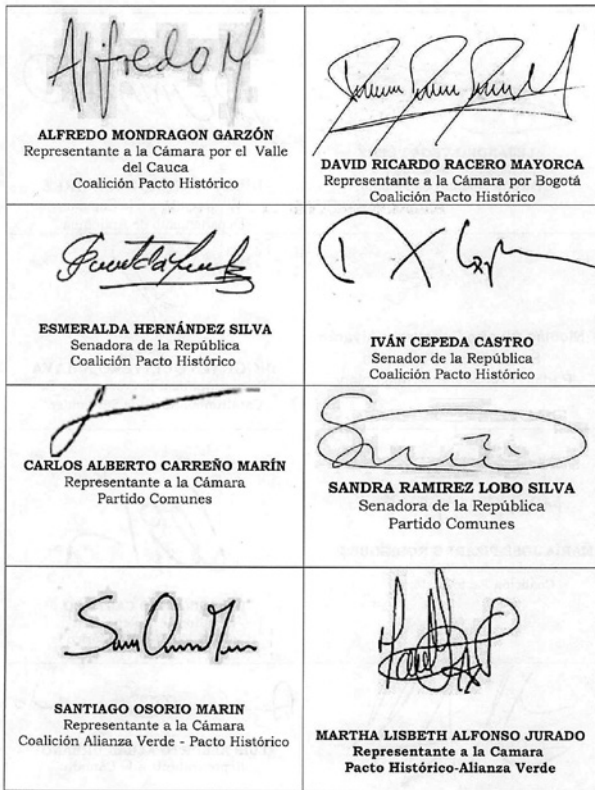 Alfredo M
ALFREDO MONDRAGON GARZÓN
Representante a la Cámara por el Valle
del Cauca
Coalición Pacto Histórico
DAVID RICARDO RACERO MAYORCA
Representante a la Cámara por Bogotá
Coalición Pacto Histórico
ESMERALDA HERNÁNDEZ SILVA
Senadora de la República
Coalición Pacto Histórico
IVÁN CEPEDA CASTRO
Senador de la República
Coalición Pacto Histórico
CARLOS ALBERTO CARREÑO MARÍN
Representante a la Cámara
Partido Comunes
SANDRA RAMIREZ LOBO SILVA
Senadora de la República
Partido Comunes
SANTIAGO OSORIO MARIN
Representante a la Cámara
Coalición Alianza Verde - Pacto Histórico
MARTHA LISBETH ALFONSO JURADO
Representante a la Camara
Pacto Histórico-Alianza Verde